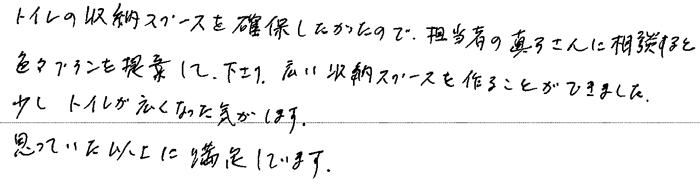 トイレの収納スペースを確保したかったので、担当者の真弓さんに相談すると
色々プランを提案して、下さり、広い収納スペースを作ることができました。
少し トイレが広くなった気がします。
思っていた以上に満足しています。